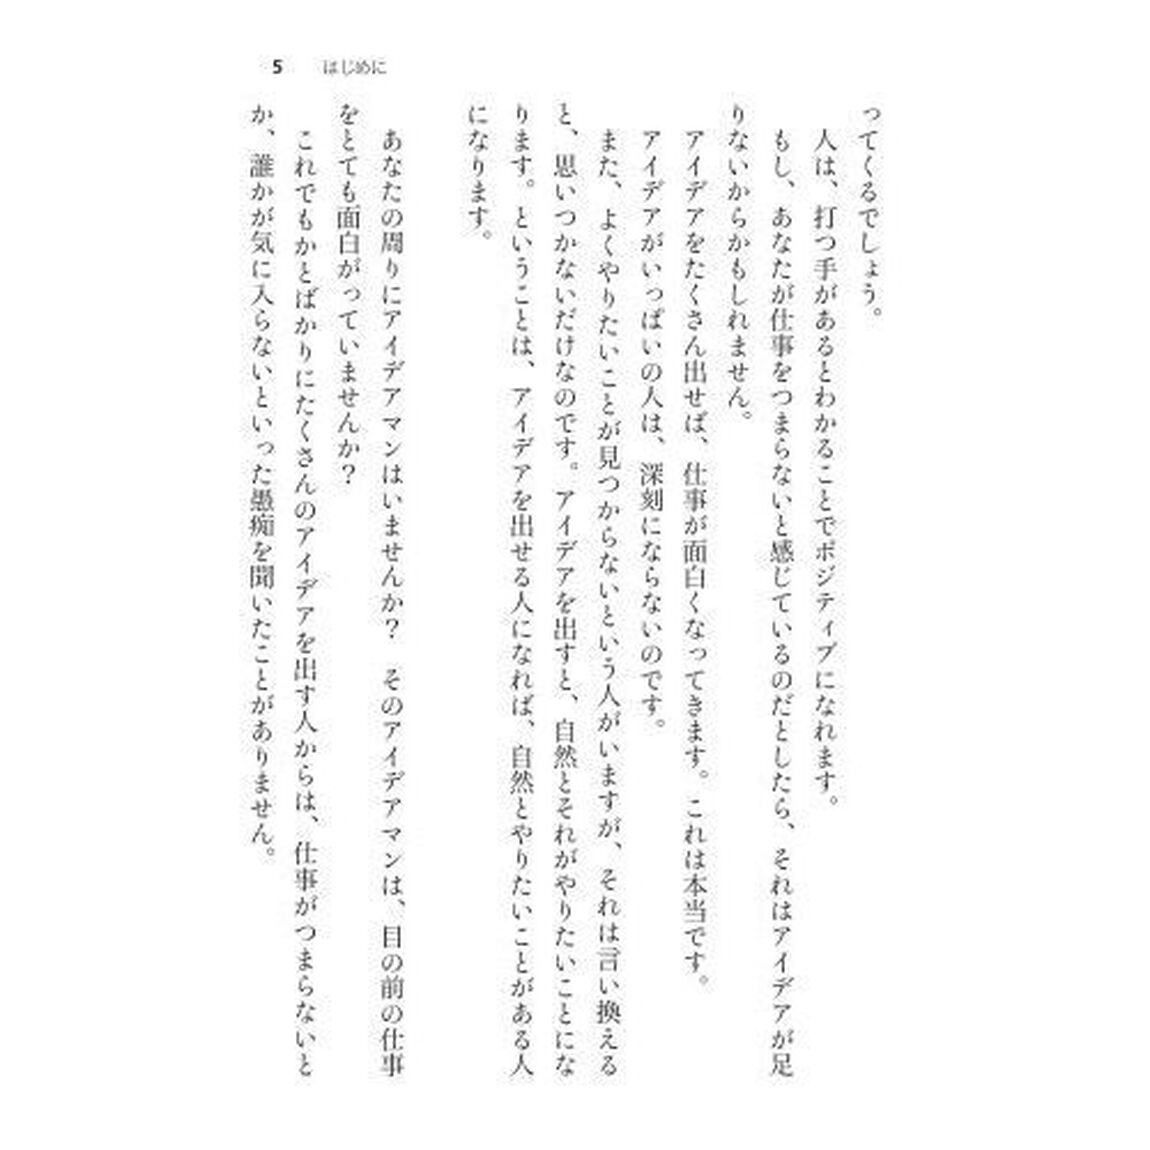 5 はじめに
ってくるでしょう。
人は、打つ手があるとわかることでポジティブになれます。
もし、あなたが仕事をつまらないと感じているのだとしたら、それはアイデアが足
りないからかもしれません。
アイデアをたくさん出せば、仕事が面白くなってきます。これは本当です。
アイデアがいっぱいの人は、深刻にならないのです。
また、よくやりたいことが見つからないという人がいますが、それは言い換える
と、思いつかないだけなのです。アイデアを出すと、自然とそれがやりたいことにな
ります。ということは、アイデアを出せる人になれば、自然とやりたいことがある人
になります。
あなたの周りにアイデアマンはいませんか？　そのアイデアマンは、目の前の仕事
をとても面白がっていませんか？
これでもかとばかりにたくさんのアイデアを出す人からは、仕事がつまらないと
か、誰かが気に入らないといった愚痴を聞いたことがありません。